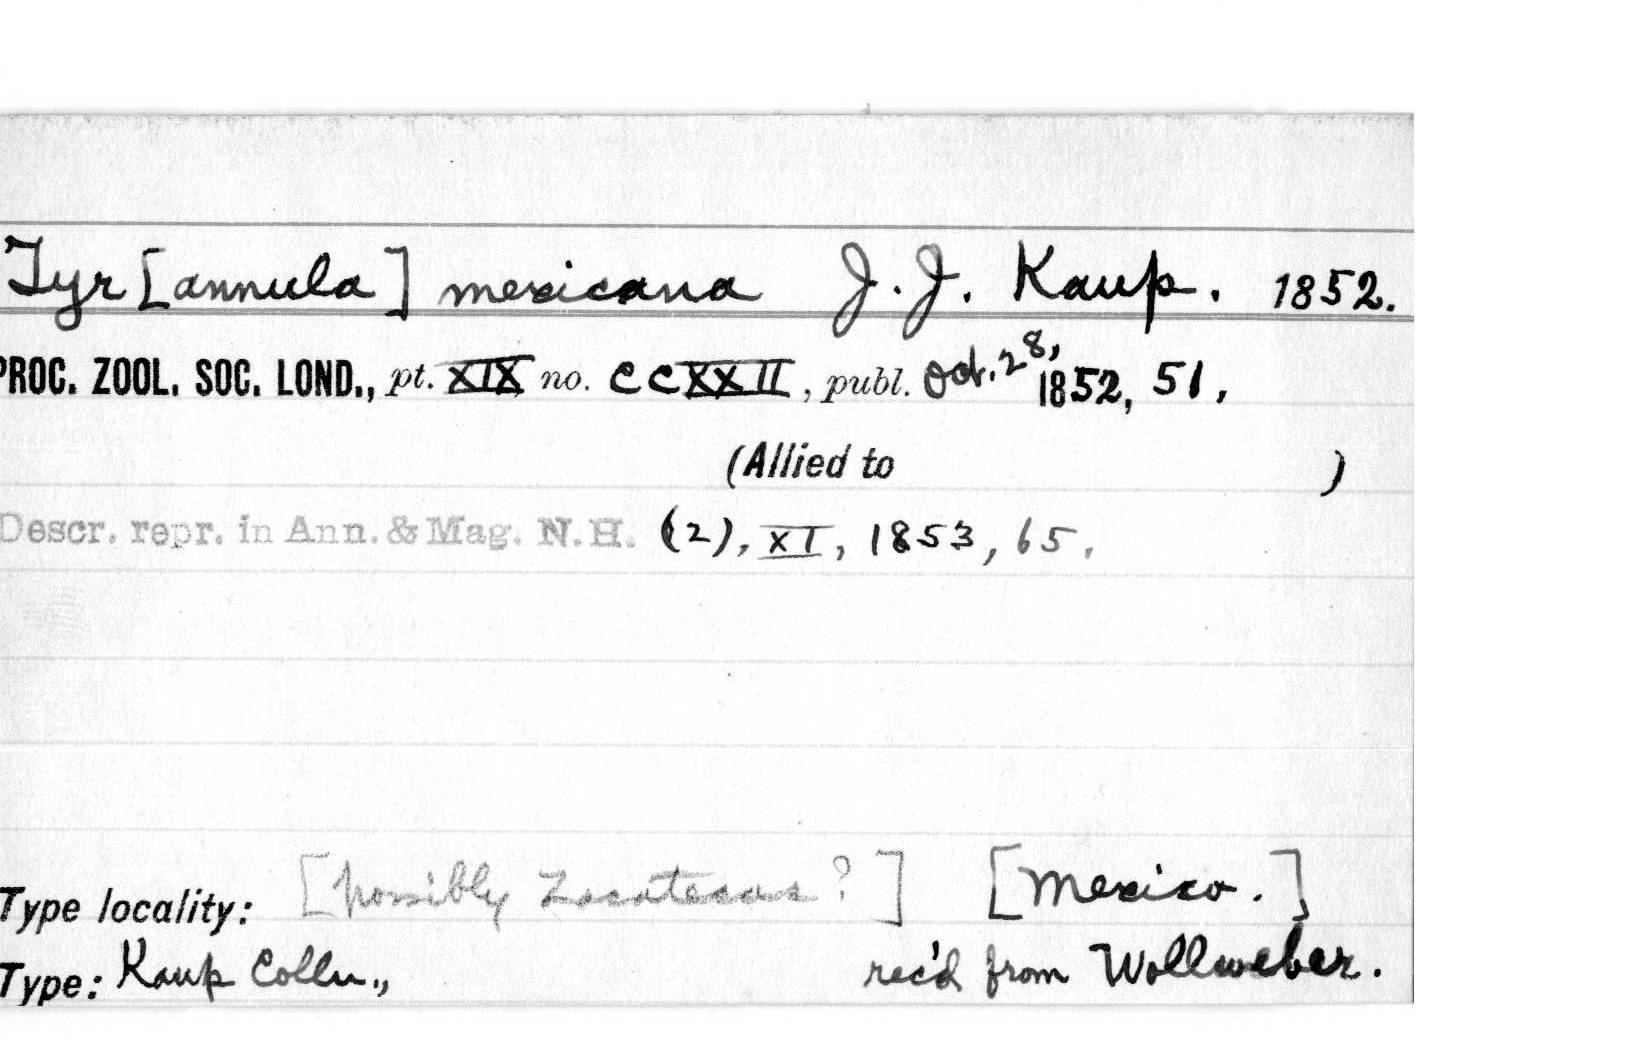 Tyr[annula] mexicana J. J. Kaup. 1852.
PROC. ZOOL. SOC. LOND., pt. XIX no. CCXXII, publ. Oct. 28, 1852, 51.
(Allied to )
Descr. repr. in Ann. & Mag. N.H. (2), XI, 1853, 65.
Type locality: [possibly Zacatecas?] [Mexico.]
Type: Kaup Colln., rec'd from Wollweber.